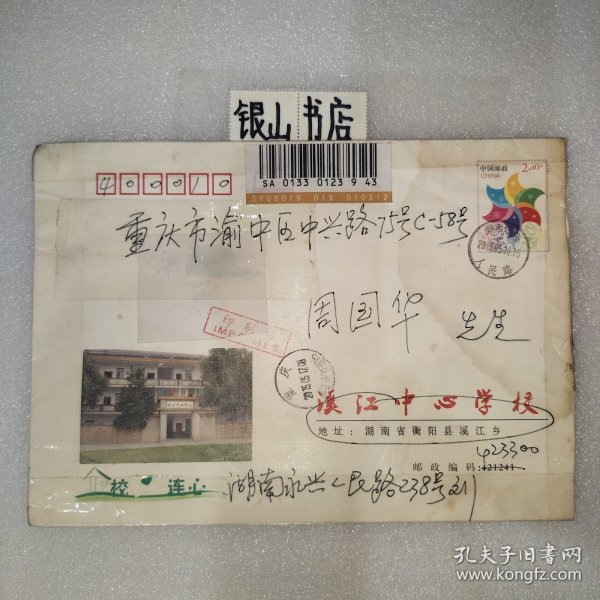 银山书店
SA 0133 0123 9 43
SY09016 019 010312
中国邮政
CHINA
2.40元
400010
重庆市渝中区中兴路75号C-58号
人民路
周国华 先生
印刷
重庆
溪江中心学校
地址：湖南省衡阳县溪江乡
423300
邮政编码：421241
校 连心
湖南永兴人民路238号刘
孔夫子旧书网
www.kongfz.com